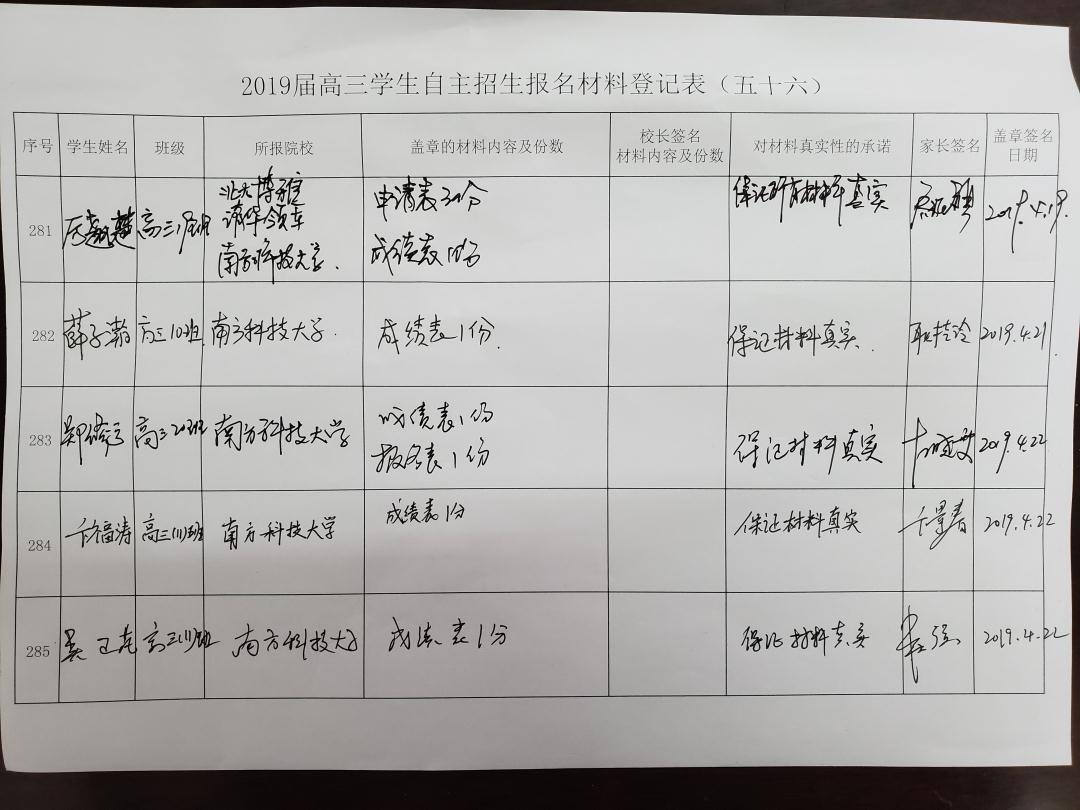 2019届高三学生自主招生报名材料登记表（五十六）
序号 学生姓名 班级 所报院校 盖章的材料内容及份数 校长签名 材料内容及份数 对材料真实性的承诺 家长签名 盖章签名 日期
281 高三 北大博雅 申请表 保证所有材料真实 2019.4.19.
清华领军 成绩表
南方科技大学.
282 薛子瀚 高三10班 南方科技大学. 成绩表1份. 保证材料真实. 2019.4.21
283 郑 高三20班 南方科技大学 成绩表1份 保证材料真实 2019.4.22
报名表1份
284 卞福涛 高三(11)班 南方科技大学 成绩表1份 保证材料真实 卞景春 2019.4.22
285 吴 高三(11)班 南方科技大学 成绩表1份 保证材料真实 2019.4.22